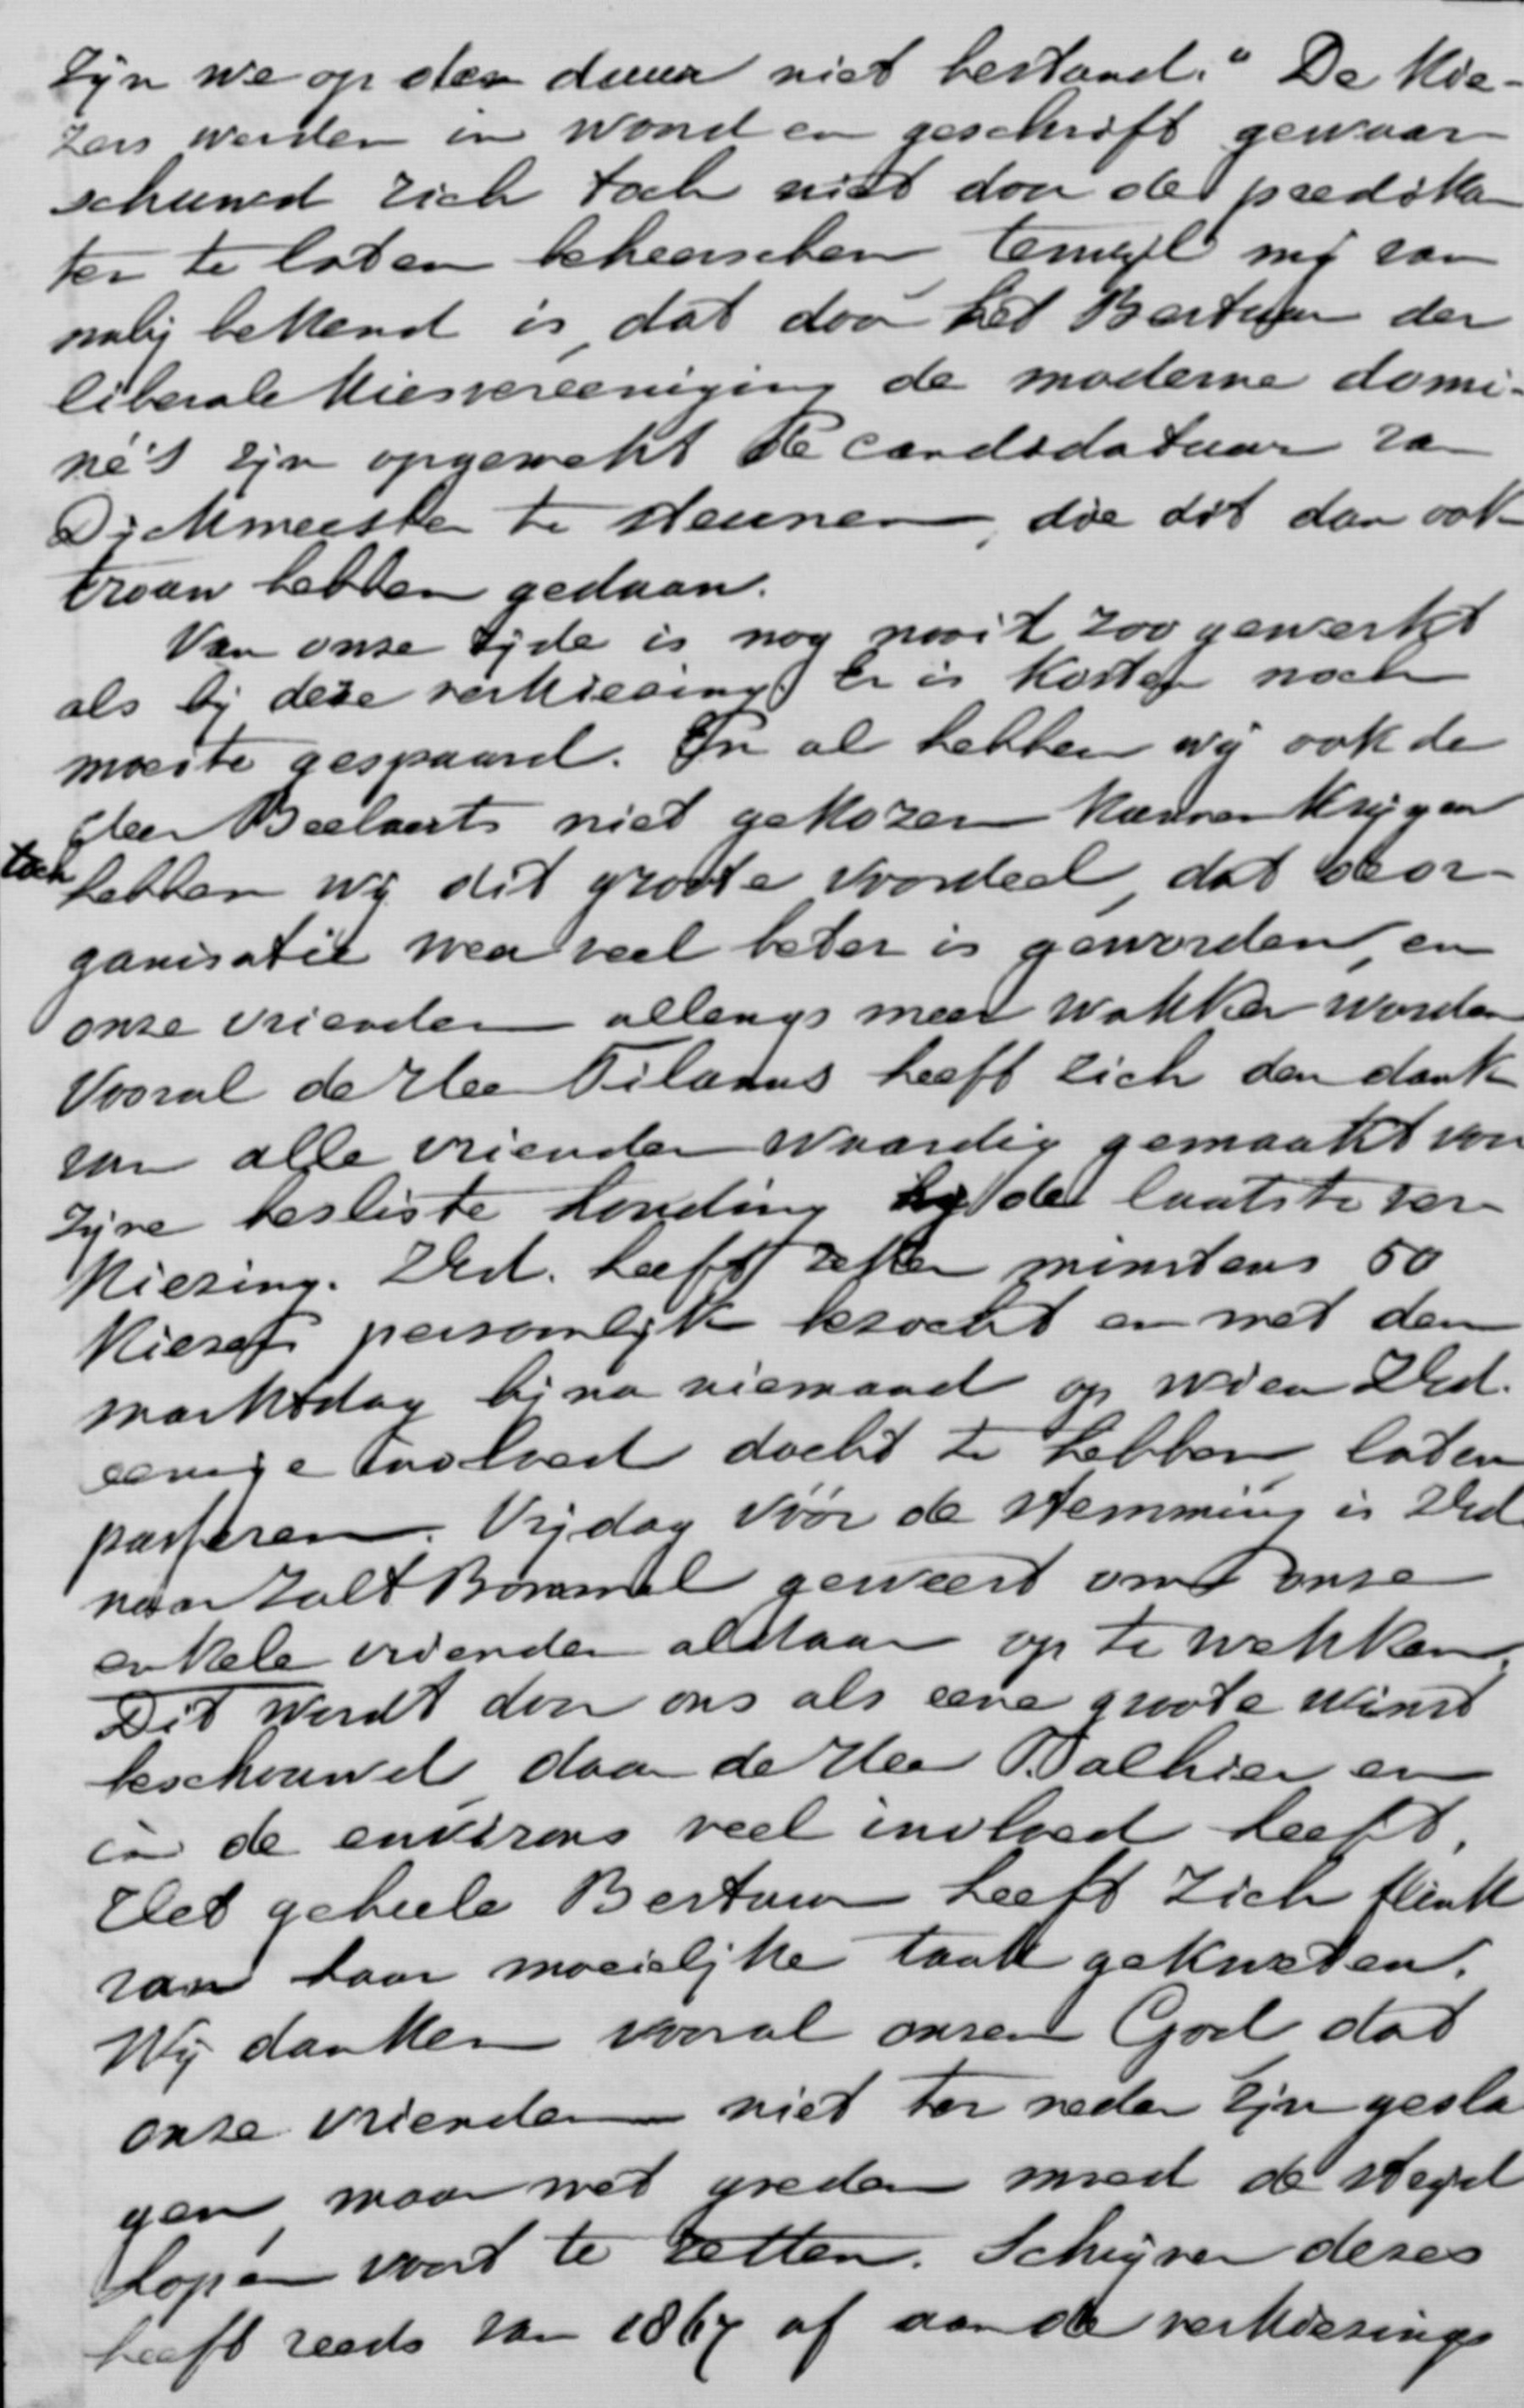 zijn we op den duur niet bestand." De kie-
zers werden in woord en geschrift gewaar
schuwd zich toch niet door de predikan
ten te laten beheerschen terwijl mij van
nabij bekend is, dat door het Bestuur der
liberale kiesvereeniging de moderne domi-
né's zijn opgewekt de candidatuur van
Dijckmeester te steunen, die dit dan ook
trouw hebben gedaan.
Van onze zijde is nog nooit zoo gewerkt
als bij deze verkiezing. Er is kosten noch
moeite gespaard. En al hebben wij ook de
Heer Beelaerts niet gekozen kunnen krijgen
toch hebben wij dit groote voordeel, dat de or-
ganisatie weer veel beter is geworden, en
onze vrienden allengs meer wakker worden
Vooral de Heer Tilanus heeft zich den dank
van alle vrienden waardig gemaakt voor
zijne besliste houding bij de laatste ver
kiezing. ZEd. heeft zeker minstens 50
kiezers personlijk bezocht en met den
marktdag bijna niemand op wien ZEd.
eenige invloed dacht te hebben laten
passeren. Vrijdag vóór de stemming is ZEd.
naar Zalt Bommel geweest om onze
enkele vrienden aldaar op te wekken.
Dit wordt door ons als eene groote winst
beschouwd, daar de Heer T. alhier en
in de environs veel invloed heeft.
Het geheele Bestuur heeft zich flink
van haar moeielijke taak gekweten.
Wij danken vooral onzen God dat
onze vrienden niet ter neder zijn gesla
gen, maar met goeden moed de strijd
hopen voort te zetten. Schrijver dezes
heeft reeds van 1867 af aan de verkiezings